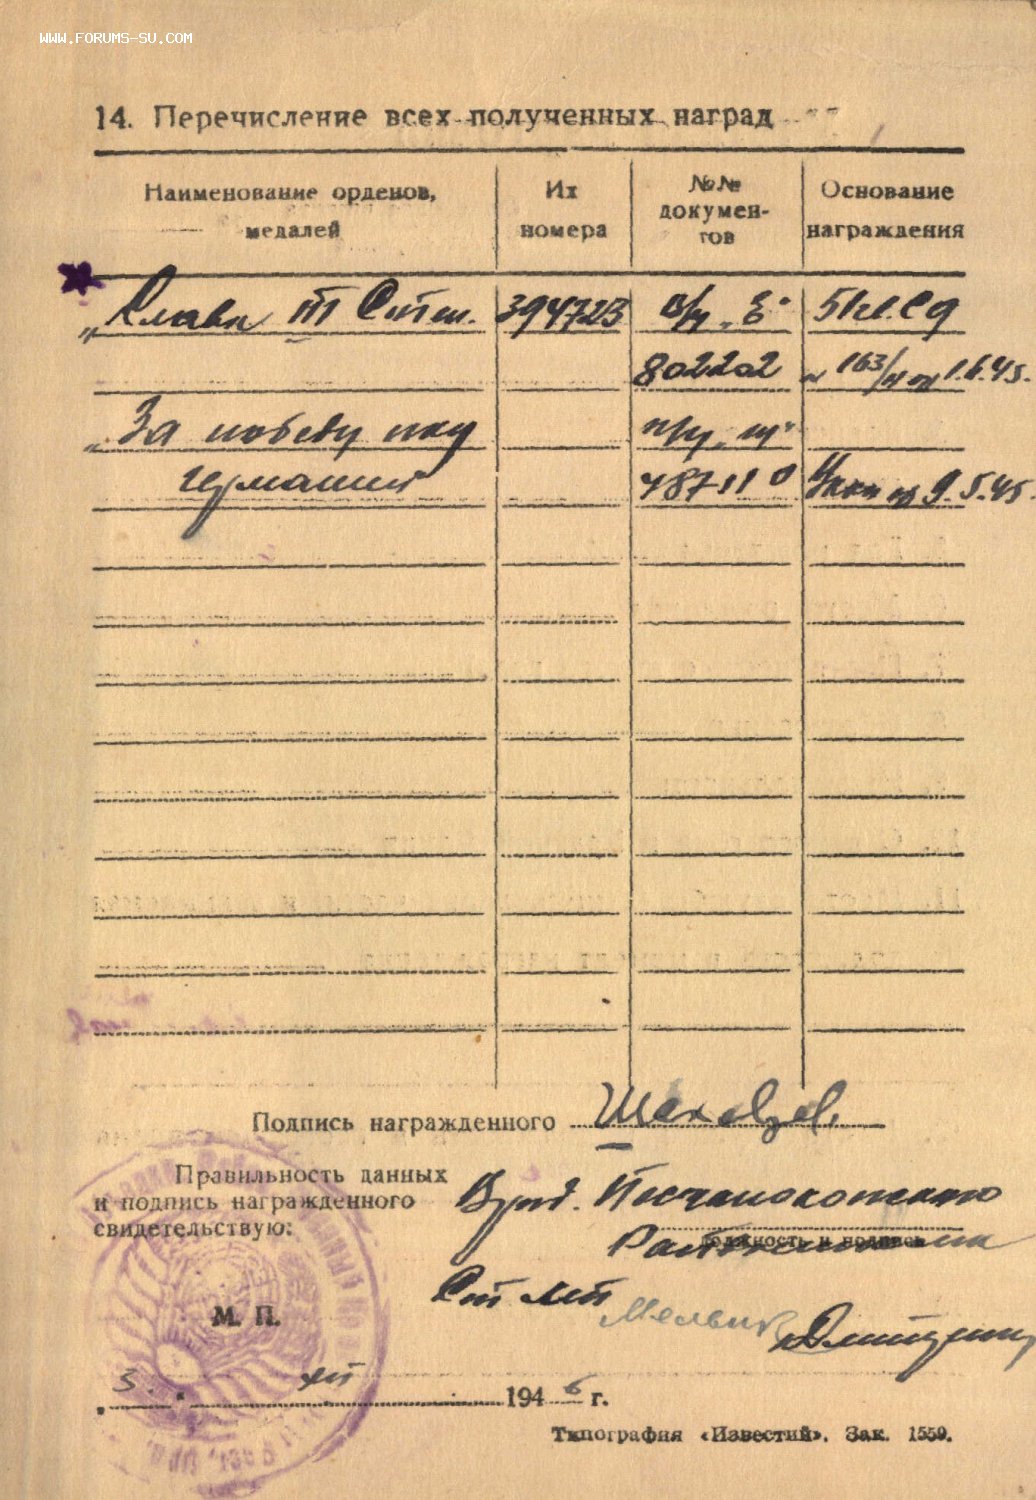 WWW.FORUMS-SU.COM
14. Перечисление всех полученных наград
Наименование орденов, медалей
Их номера
№№ документов
Основание награждения
„Слава III Степ. 394723 в/у „Е" 51 гв. СД
802202 № 163/н от 1.6.45.
„За победу над
Германией 487110 Указ от 9.5.45.
Подпись награжденного
Правильность данных
и подпись награжденного
свидетельствую:
Врид. Песчанокопского
должность и подпись
Ст. Л-т
М. П.
3. XII 1946 г.
Типография «Известий». Зак. 1559.